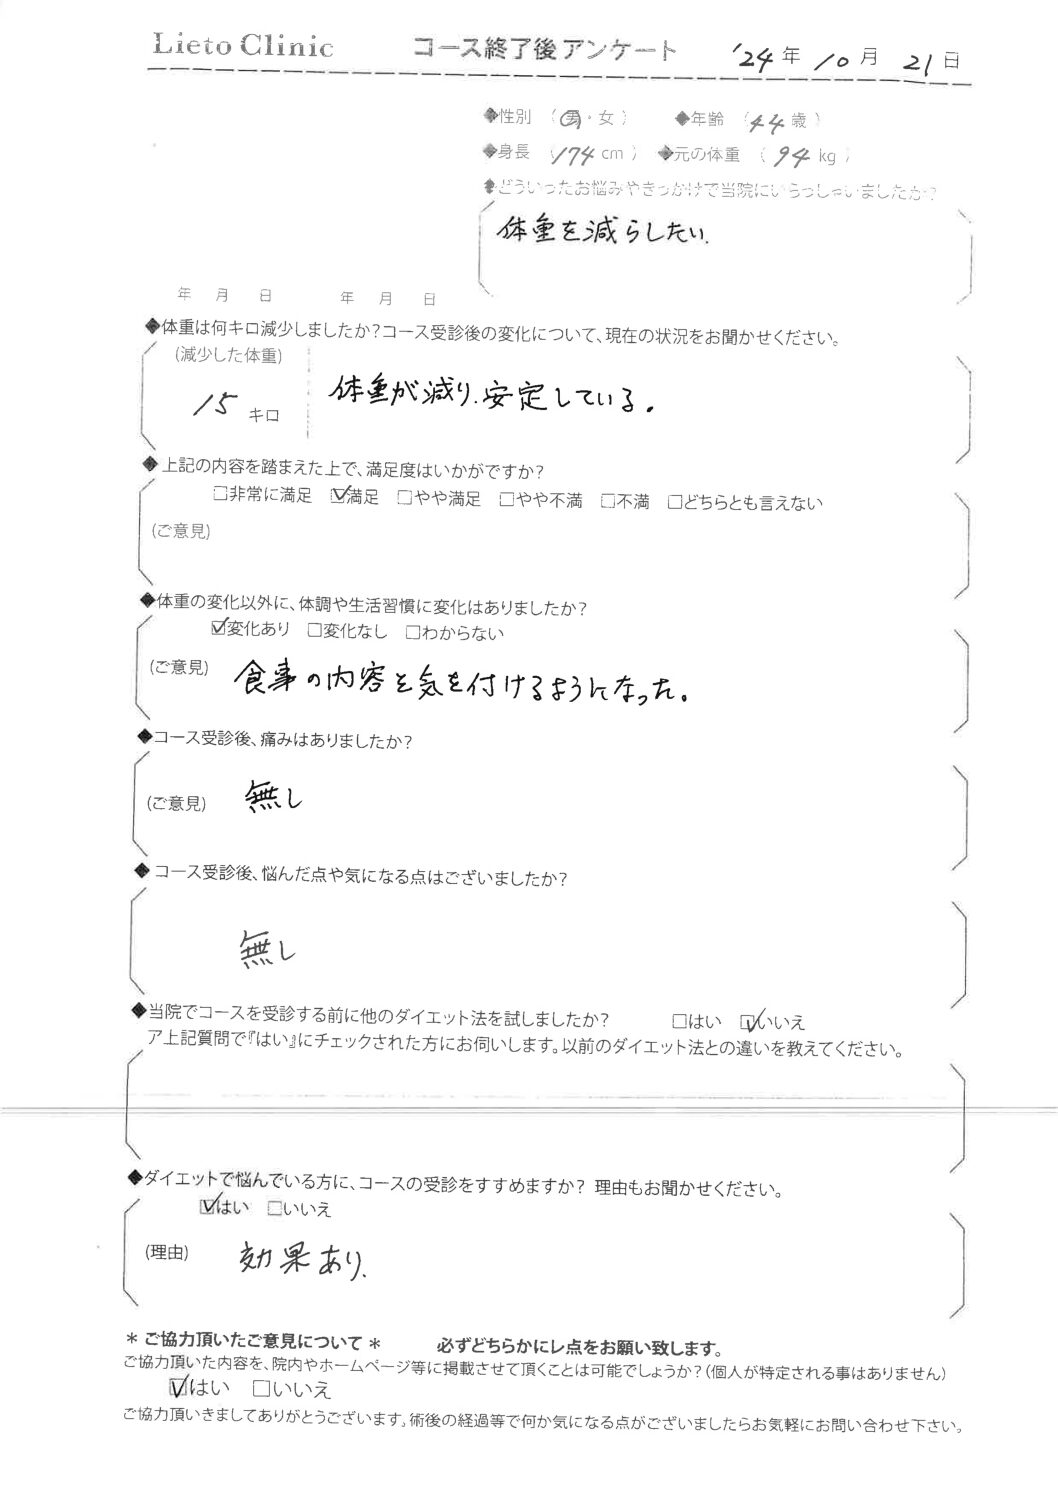 Lieto Clinic コース終了後アンケート '24年10月21日
◆性別 (男・女) ◆年齢 (44歳)
◆身長 (174cm) ◆元の体重 (94kg)
◆どういったお悩みやきっかけで当院にいらっしゃいましたか?
体重を減らしたい.
年 月 日 年 月 日
◆体重は何キロ減少しましたか?コース受診後の変化について、現在の状況をお聞かせください。
(減少した体重)
15 キロ 体重が減り、安定している。
◆上記の内容を踏まえた上で、満足度はいかがですか?
□非常に満足 ☑満足 □やや満足 □やや不満 □不満 □どちらとも言えない
(ご意見)
◆体重の変化以外に、体調や生活習慣に変化はありましたか?
☑変化あり □変化なし □わからない
(ご意見) 食事の内容と気を付けるようになった。
◆コース受診後、痛みはありましたか?
(ご意見) 無し
◆コース受診後、悩んだ点や気になる点はございましたか?
無し
◆当院でコースを受診する前に他のダイエット法を試しましたか? □はい ☑いいえ
ア上記質問で『はい』にチェックされた方にお伺いします。以前のダイエット法との違いを教えてください。
◆ダイエットで悩んでいる方に、コースの受診をすすめますか? 理由もお聞かせください。
☑はい □いいえ
(理由) 効果あり.
＊ご協力頂いたご意見について＊ 必ずどちらかにレ点をお願い致します。
ご協力頂いた内容を、院内やホームページ等に掲載させて頂くことは可能でしょうか?(個人が特定される事はありません)
☑はい □いいえ
ご協力頂いきましてありがとうございます。術後の経過等で何か気になる点がございましたらお気軽にお問い合わせ下さい。